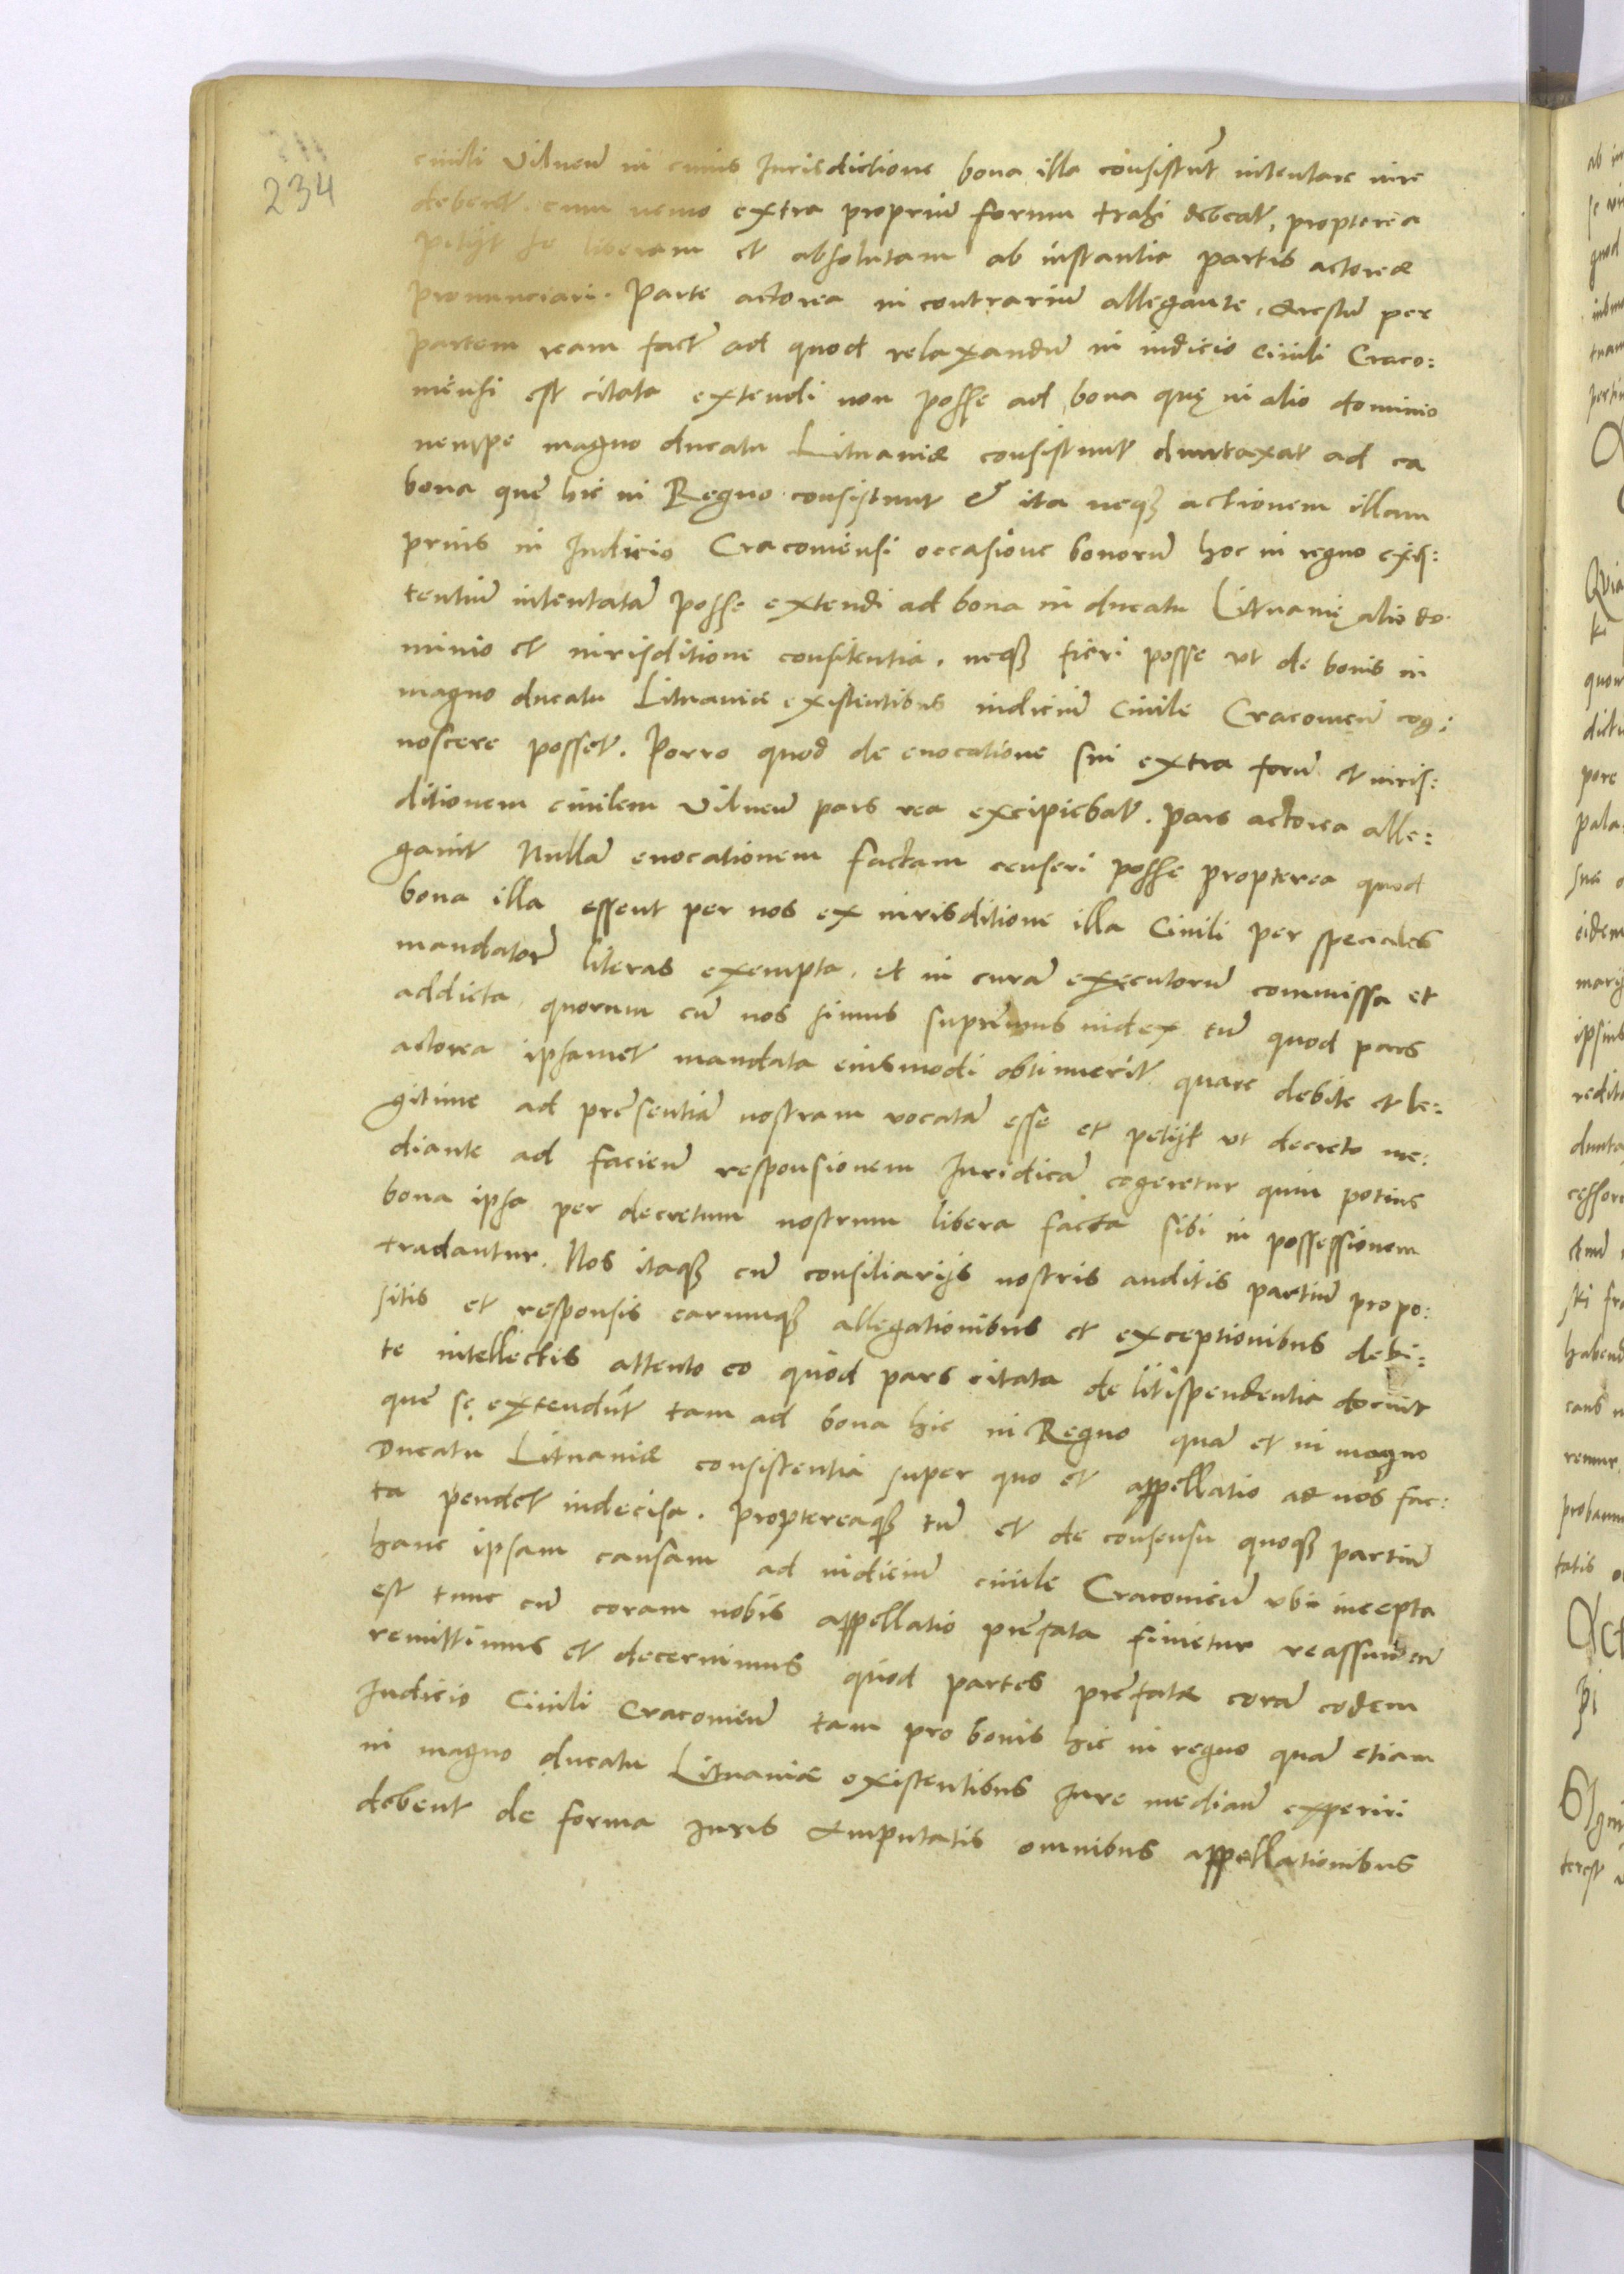 234
ciuili Vilneñ in cuius Jurisdictione bona illa consistunt intentare iure
deberet. cum nemo extra proprium forum trahi debeat, propterea
petijt se liberam et absolutam ab instantia partis actoreæ
pronunciari. Parte actorea in contrarium allegante, arestum per
partem ream fact̃ ad quod relaxandum in iudicio ciuili Craco:
uieñsi est citata extendi non posse ad bona quę in alio dominio
nempe magno ducatu Lituaniæ consistunt duntaxat ad ea
bona quæ hic in Regno consistunt & ita neqꝫ actionem illam
prius in Judicio Cracouieñsi occasione bonorũ hoc in regno exis:
tentiũ intentatã posse extendi ad bona in ducatu Lituanię alio do
minio et iurisditione consitentia. neqꝫ fieri posse vt de bonis in
magno ducatu Lituaniæ existentibus iudiciũ Ciuile Cracouieñ cog:
noscere posset. Porro quod de euocatione sui extra forũ et iuris:
ditionem ciuilem Vilneñ pars rea excipiebat. Pars actorea alle:
gauit Nullã euocationem factam censeri posse propterea quod
bona illa essent per nos ex iurisditione illa Ciuili per speciales
mandatorũ literas exempta, et in curã executorũ commissa et
addicta quorum cũ nos simus supremus iudex tũ quod pars
actorea ipsamet mandata eiusmodi obtinuerit quare debite et le:
gitime ad præsentiã nostram vocatã esse et petijt vt decreto me:
diante ad facieñ responsionem Juridicã cogeretur quin potius
bona ipsa per decretum nostrum libera facta sibi in possessionem
tradantur. Nos itaqꝫ cũ consiliarijs nostris auditis partiũ propo:
sitis et responsis earumqꝫ allegationibus et exceptionibus debi:
te intellectis attento eo quod pars citata de litispendentia docuit
quæ sę extendũt tam ad bona hic in Regno quã et in magno
Ducatu Lituaniæ consistentia super quo et appellatio ad nos fac:
ta pendet indecisa. Proptereaqꝫ tũ et de consensu quoqꝫ partiũ
hanc ipsam causam ad iudiciũ ciuile Cracouieñ vbi incepta
est tunc cũ coram nobis appellatio præfata finietur reassumeñ
remittimus et decernimus quod partes præfatæ corã eodem
Judicio Ciuili Cracouieñ tam pro bonis hic in regno quã etiam
in magno ducatu Lituaniæ existentibus Jure mediañ experiri
debent de forma Juris amputatis omnibus appellationibus